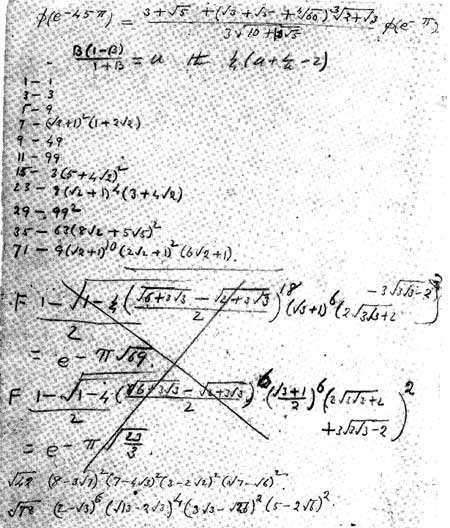 φ(e^-45π) = (3+√5 + (√3+√5+⁴√60) ³√(2+√3)) / (3√10+10√5) φ(e^-π)
β(1-β)/(1+β) = u
1 - 1
3 - 3
5 - 9
7 - (√2+1)²(1+2√2)
9 - 49
11 - 99
15 - 3(5+4√2)²
23 - 9(√2+1)⁴(3+4√2)
29 - 99²
35 - 63(8√2+5√5)²
71 - 9(√2+1)¹⁰(2√2+1)²(6√2+1).
F (1-√(1-4((√(6+3√3) - √(2+3√3))/2)
= e^-π√69.
F (1-√(1-4((√(6+3√3) - √(2+3√3))/2)⁶ ((√3+1)/2)⁶
= e^-π√(23/3)
√42 (8-3√7)²(7-4√3)²(3-2√2)²(√7-√6)²
√78 (2-√3)⁶(√13-2√3)⁴(3√3-√26)²(5-2√6)²